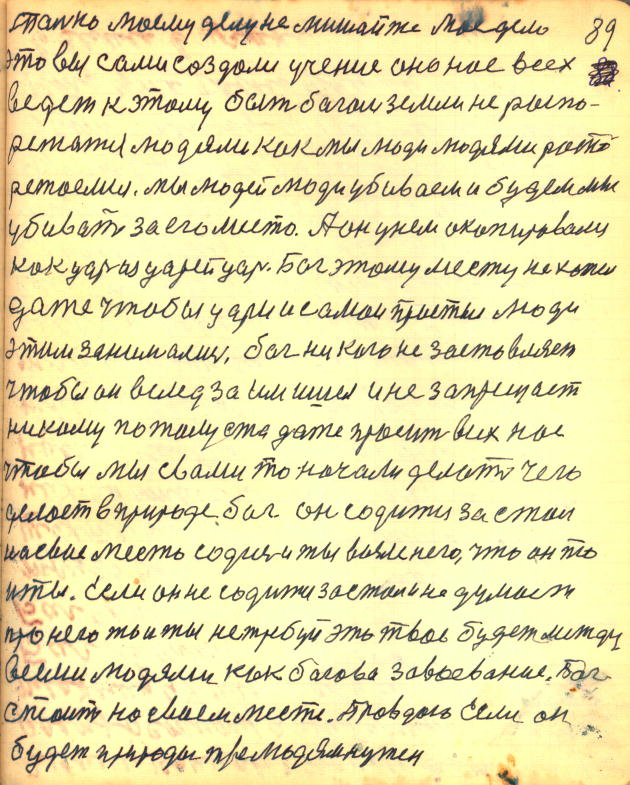 только моему делу не мишай же мое дело 89
это вы сами создали учение оно нас всех
ведет к этому быт богом земли не распо-
режатся людями как мы люди людями распо
режаемся. мы людей люди убиваем и будем мы
убивать за его место. А он у нем
как царя царей цар. Бог этому месту не хотел
даже чтобы цари и самои простыи люди
этим занимались, бог никого не заставляет
чтобы он вслед за им ишел и не запрещает
никому потому ста даже просит всих нас
чтобы мы свами то начали делать чего
делает в природе бог он садится за стол
на свае место садис и ты возле него, что он то
и ты. Если он не садится за стол и не думает
про него то и ты не требуй это твое будет между
всеми людями как богова завоевание. Бог
стоит на своем месте. Правдою Если он
будет природы людям нужен